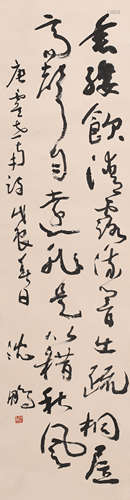 垂緌飲清露流響出疏桐居
高聲自遠非是藉秋風
虞世南詩戊辰春日
沈鵬